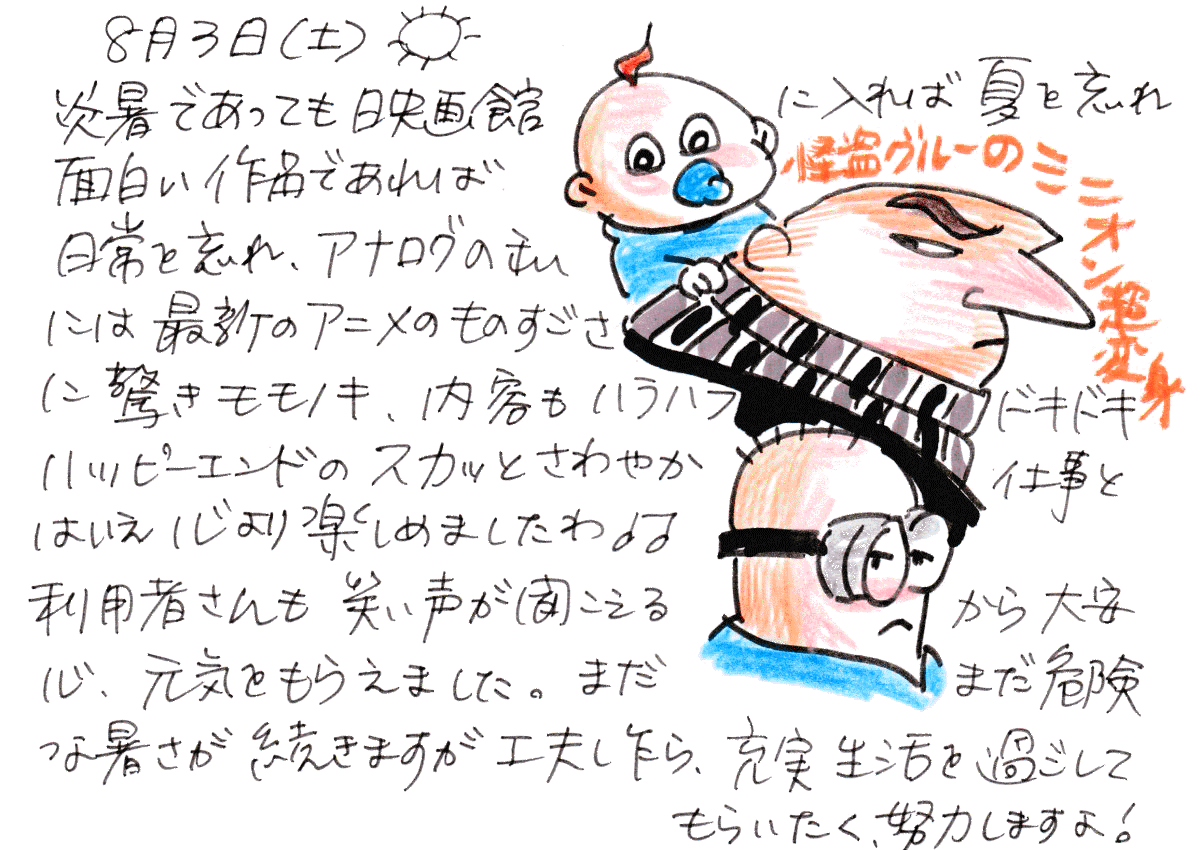 8月3日(土)
炎暑であっても映画館に入れば夏を忘れ
怪盗グルーのミニオン超変身
面白い作品であれば
日常を忘れ、アナログの私
には最新のアニメのものすごさ
に驚きモモノキ、内容もハラハラドキドキ
ハッピーエンドのスカッとさわやか仕事と
はいえ心より楽しめましたわ♪♪
利用者さんも笑い声が聞こえるから大安
心、元気をもらえました。まだまだ危険
な暑さが続きますが工夫し乍ら、充実生活を過ごして
もらいたく、努力しますよ!